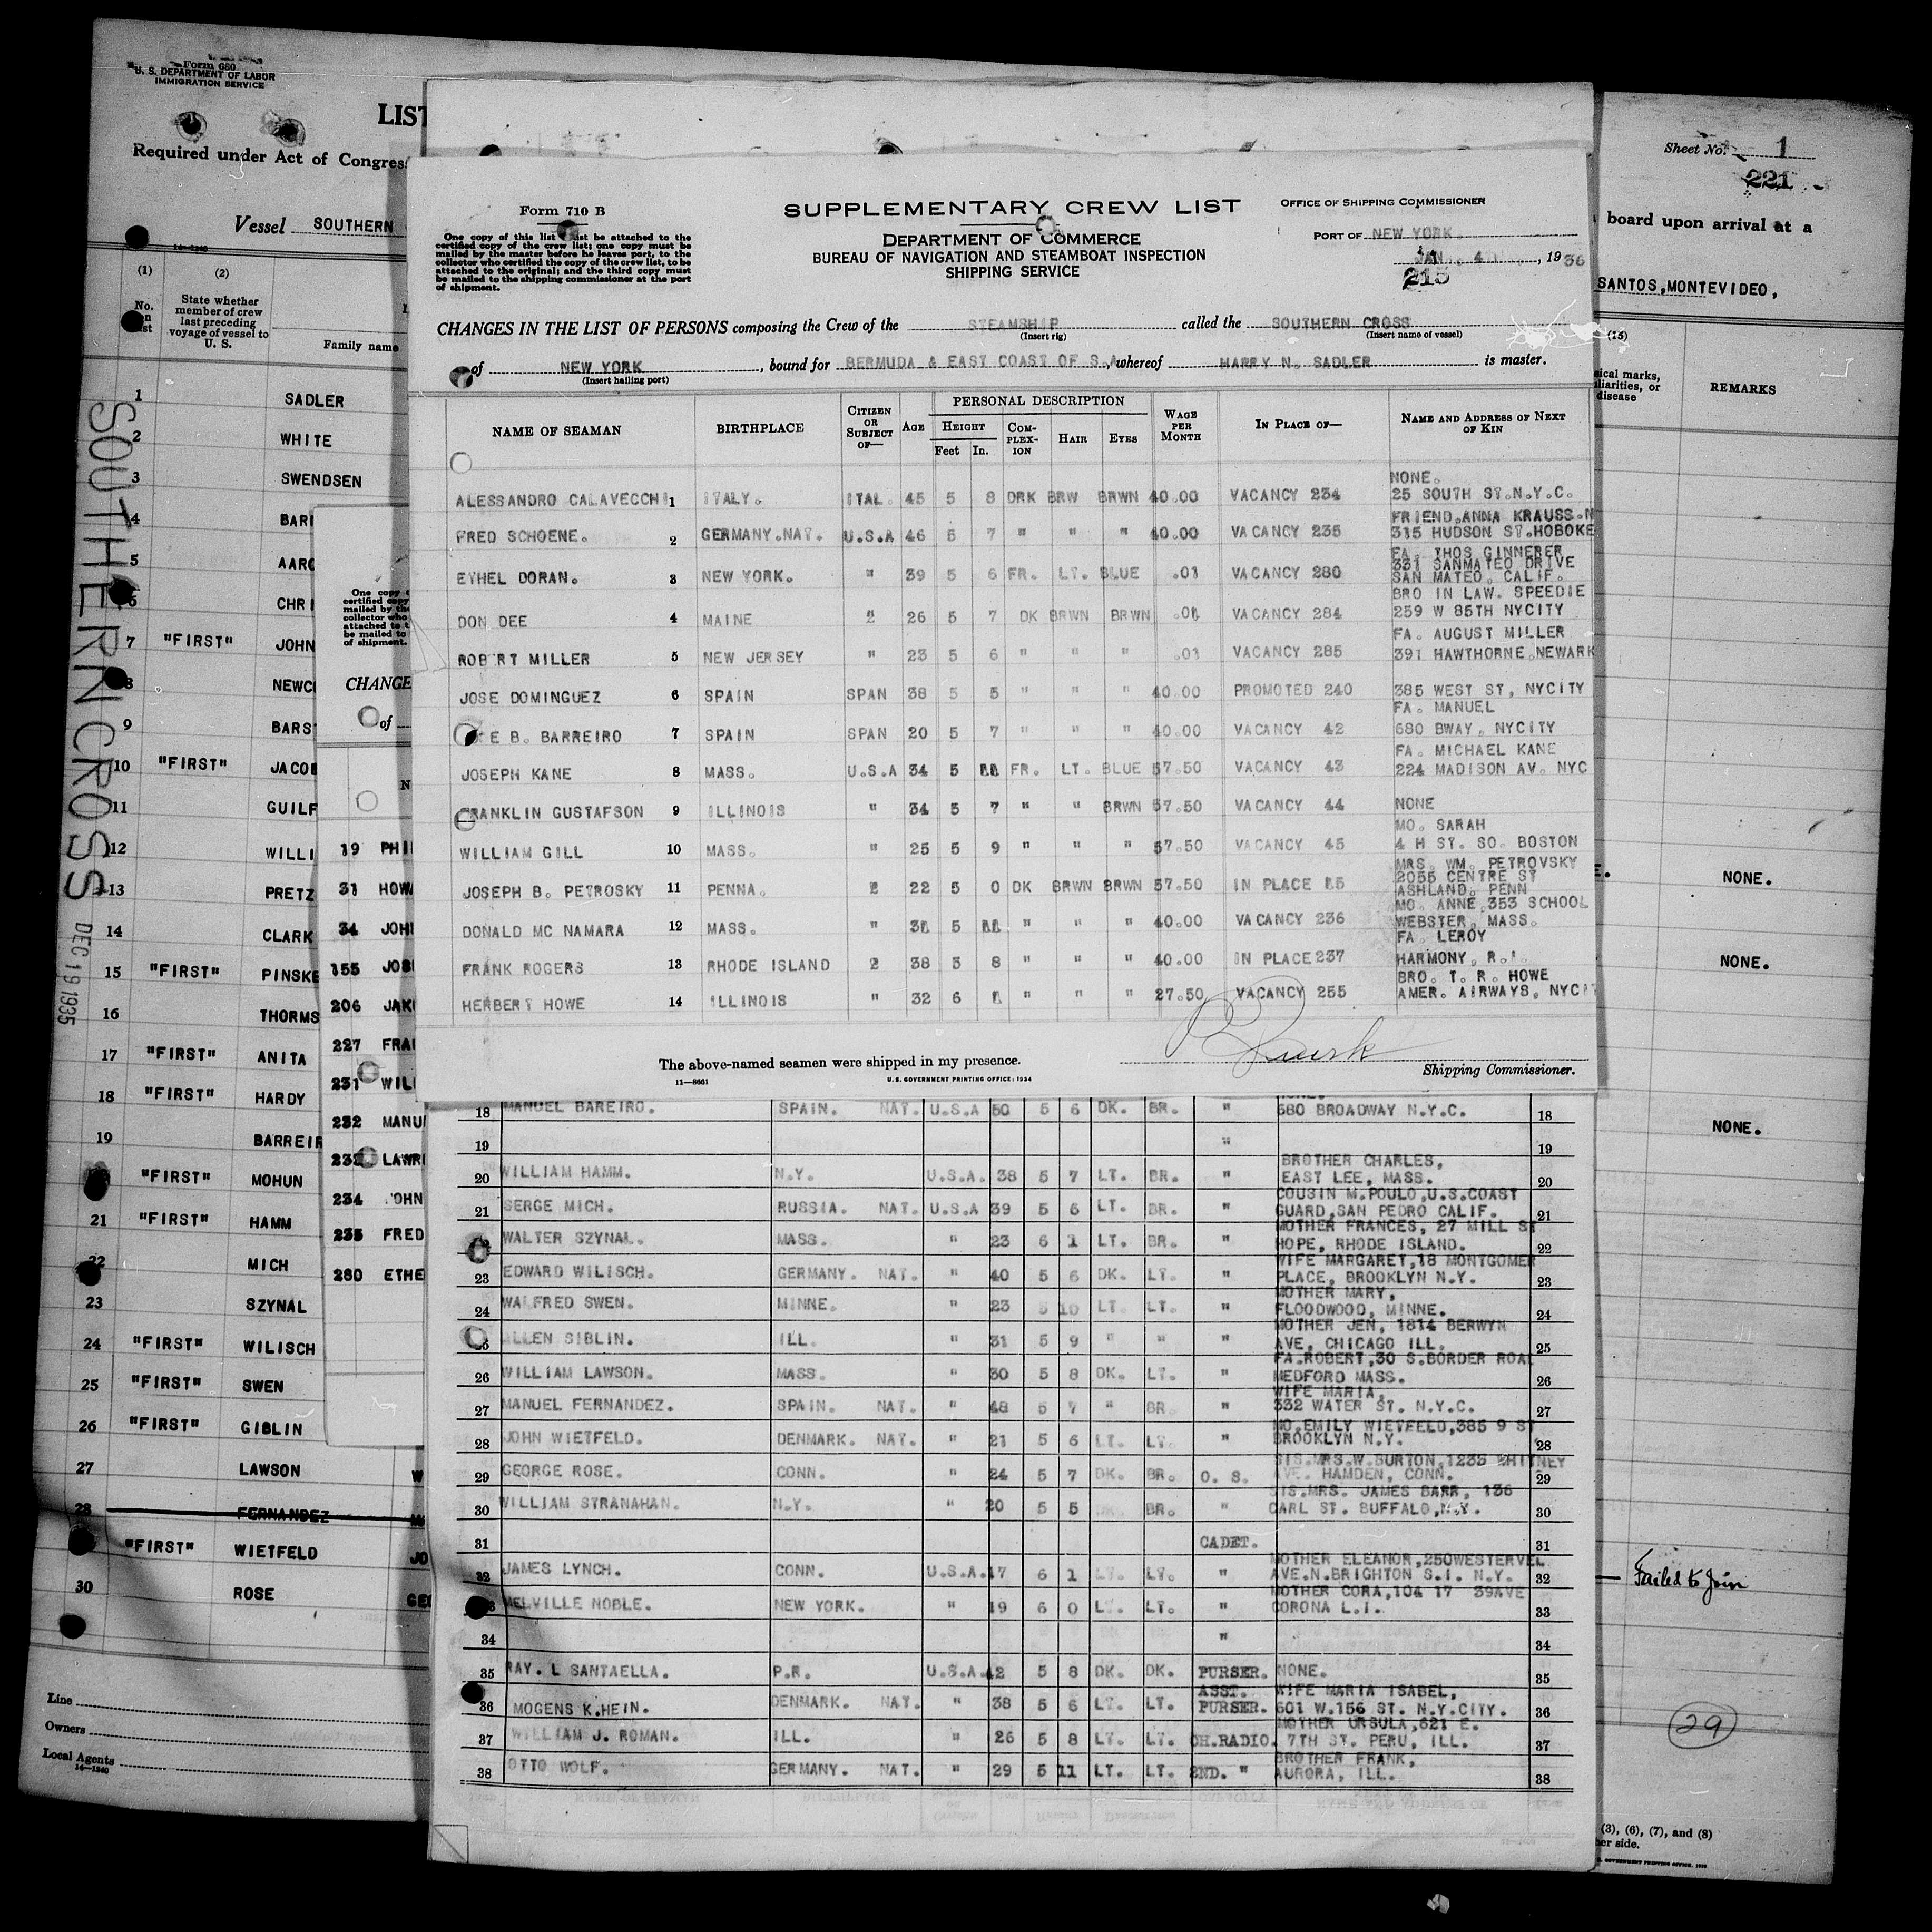 Form 680
U. S. DEPARTMENT OF LABOR
IMMIGRATION SERVICE
LIST
Required under Act of Congress
Vessel SOUTHERN
14—1240
(1)
(2)
No. on list
State whether member of crew last preceding voyage of vessel to U. S.
Family name
1 SADLER
2 WHITE
3 SWENDSEN
4 BAR
5 AARO
6 CHRI
7 "FIRST" JOHN
8 NEWC
9 BARS
10 "FIRST" JACOB
11 GUILF
12 WILLI
13 PRETZ
14 CLARK
15 "FIRST" PINSKE
16 THORMS
17 "FIRST" ANITA
18 "FIRST" HARDY
19 BARREIR
"FIRST" MOHUN
21 "FIRST" HAMM
22 MICH
23 SZYNAL
24 "FIRST" WILISCH
25 "FIRST" SWEN
26 "FIRST" GIBLIN
27 LAWSON
28 FERNANDEZ
"FIRST" WIETFELD
30 ROSE
Line
Owners
Local Agents
14—1240
SOUTHERN CROSS
DEC 19 1935
One copy
certified copy
mailed by the
collector who
attached to t
be mailed to
of shipment.
CHANGE
of
N
19 PHI
31 HOWA
34 JOH
155 JOS
206 JAK
227 FRA
231 WIL
232 MANU
233 LAWR
234 JOHN
235 FRED
280 ETHE
Form 710 B
One copy of this list must be attached to the
certified copy of the crew list; one copy must be
mailed by the master before he leaves port, to the
collector who certified the copy of the crew list, to be
attached to the original; and the third copy must
be mailed to the shipping commissioner at the port
of shipment.
SUPPLEMENTARY CREW LIST
DEPARTMENT OF COMMERCE
BUREAU OF NAVIGATION AND STEAMBOAT INSPECTION
SHIPPING SERVICE
OFFICE OF SHIPPING COMMISSIONER
PORT OF NEW YORK
JAN. 4, 1936
215
CHANGES IN THE LIST OF PERSONS composing the Crew of the STEAMSHIP called the SOUTHERN CROSS
(Insert rig) (Insert name of vessel)
of NEW YORK, bound for BERMUDA & EAST COAST OF S.A. whereof HARRY N. SADLER is master.
(Insert hailing port)
NAME OF SEAMAN
BIRTHPLACE
CITIZEN OR SUBJECT OF—
AGE
PERSONAL DESCRIPTION
HEIGHT
Feet In.
COMPLEX-ION
HAIR
EYES
WAGE PER MONTH
IN PLACE OF—
NAME AND ADDRESS OF NEXT OF KIN
NONE.
ALESSANDRO CALAVECCHI 1 ITALY. ITAL. 45 5 8 DRK BRW BRWN 40.00 VACANCY 234 25 SOUTH ST.N.Y.C.
FRIEND.ANNA KRAUSS.N
FRED SCHOENE. 2 GERMANY.NAT. U.S.A 46 5 7 " " " 40.00 VACANCY 235 315 HUDSON ST.HOBOKE
FA. THOS GINNERER
331 SANMATEO DRIVE
ETHEL DORAN. 3 NEW YORK. " 39 5 6 FR. LT. BLUE .01 VACANCY 280 SAN MATEO. CALIF.
BRO IN LAW. SPEEDIE
DON DEE 4 MAINE 2 26 5 7 DK BRWN BRWN .01 VACANCY 284 259 W 85TH NYCITY
FA. AUGUST MILLER
ROB RT MILLER 5 NEW JERSEY " 23 5 6 " " " .01 VACANCY 285 391 HAWTHORNE.NEWARK
JOSE DOMINGUEZ 6 SPAIN SPAN 38 5 5 " " " 40.00 PROMOTED 240 385 WEST ST, NYCITY
FA. MANUEL
E B. BARREIRO 7 SPAIN SPAN 20 5 7 " " " 40.00 VACANCY 42 680 BWAY. NYCITY
FA. MICHAEL KANE
JOSEPH KANE 8 MASS. U.S.A 34 5 FR. LT. BLUE 57.50 VACANCY 43 224 MADISON AV. NYC
FRANKLIN GUSTAFSON 9 ILLINOIS " 34 5 7 " " BRWN 57.50 VACANCY 44 NONE
MO. SARAH
WILLIAM GILL 10 MASS. " 25 5 9 " " " 57.50 VACANCY 45 4 H ST. SO. BOSTON
MRS. WM. PETROVSKY
2055 CENTRE ST
JOSEPH B. PETROSKY 11 PENNA. 2 22 5 0 DK BRWN BRWN 57.50 IN PLACE ASHLAND. PENN
MO. ANNE 353 SCHOOL
DONALD MC NAMARA 12 MASS. " 5 " " " 40.00 VACANCY 236 WEBSTER, MASS.
FA. LEROY
FRANK ROGERS 13 RHODE ISLAND 2 38 3 8 " " " 40.00 IN PLACE 237 HARMONY, R.I.
BRO. T. R. HOWE
HERBERT HOWE 14 ILLINOIS " 32 6 " " " 27.50 VACANCY 255 AMER. AIRWAYS, NYCI
The above-named seamen were shipped in my presence.
11—8661
U. S. GOVERNMENT PRINTING OFFICE: 1934
Shipping Commissioner.
NONE.
18 MANUEL BAREIRO. SPAIN. NAT. U.S.A 50 5 6 DK. BR. " 680 BROADWAY N.Y.C. 18
19 " 19
BROTHER CHARLES,
20 WILLIAM HAMM. N.Y. U.S.A. 38 5 7 LT. BR. " EAST LEE, MASS. 20
COUSIN M.POULO,U.S.COAST
21 SERGE MICH. RUSSIA. NAT. U.S.A 39 5 6 LT. BR. " GUARD,SAN PEDRO CALIF. 21
MOTHER FRANCES, 27 MILL ST
WALTER SZYNAL. MASS. " 23 6 1 LT. BR. " HOPE, RHODE ISLAND. 22
WIFE MARGARET,18 MONTGOMER
23 EDWARD WILISCH. GERMANY. NAT. " 40 5 6 DK. LT. " PLACE, BROOKLYN N.Y. 23
MOTHER MARY,
24 WALFRED SWEN. MINNE. " 23 5 10 LT. LT. " FLOODWOOD, MINNE. 24
MOTHER JEN, 1814 BERWYN
ALLEN SIBLIN. ILL. " 31 5 9 " " " AVE, CHICAGO ILL. 25
FA.ROBERT,30 S.BORDER ROAD
26 WILLIAM LAWSON. MASS. " 30 5 8 DK. LT. " MEDFORD MASS. 26
WIFE MARIA,
27 MANUEL FERNANDEZ. SPAIN. NAT. " 48 5 7 " BR. " 332 WATER ST. N.Y.C. 27
MO.EMILY WIETFELD,385 9 ST
28 JOHN WIETFELD. DENMARK. NAT. " 21 5 6 LT. LT. " BROOKLYN N.Y. 28
SIS.MRS.W.BURTON,1235 WHITNEY
29 GEORGE ROSE. CONN. " 24 5 7 DK. BR. O. S. AVE. HAMDEN, CONN. 29
SIS.MRS. JAMES BARR, 136
30 WILLIAM STRANAHAN. N.Y. " 20 5 5 BR. " CARL ST. BUFFALO,N.Y. 30
31 CADET. 31
MOTHER ELEANOR,250WESTERVEL
32 JAMES LYNCH. CONN. U.S.A.17 6 1 LT. LT. " AVE.N.BRIGHTON S.I. N.Y. 32
MOTHER CORA,104 17 39AVE
MELVILLE NOBLE. NEW YORK. " 19 6 0 LT. LT. " CORONA L.I. 33
34 " 34
35 RAY. L SANTAELLA. P.R. U.S.A.42 5 8 DK. DK. PURSER. NONE. 35
ASST. WIFE MARIA ISABEL,
36 MOGENS K.HEIN. DENMARK. NAT. " 38 5 6 LT. LT. PURSER. 601 W.156 ST. N.Y.CITY. 36
MOTHER URSULA,621 E.
37 WILLIAM J. ROMAN. ILL. " 26 5 8 LT. LT. CH.RADIO. 7TH ST. PERU, ILL. 37
BROTHER FRANK,
38 OTTO WOLF. GERMANY. NAT. " 29 5 11 LT. LT. 2ND. " AURORA, ILL. 38
Sheet No. 1
221
board upon arrival at a
SANTOS,MONTEVIDEO,
(15)
sical marks,
uliarities, or
disease
REMARKS
NONE.
NONE.
NONE.
Failed to Join
29
(3), (6), (7), and (8)
her side.
U. S. GOVERNMENT PRINTING OFFICE